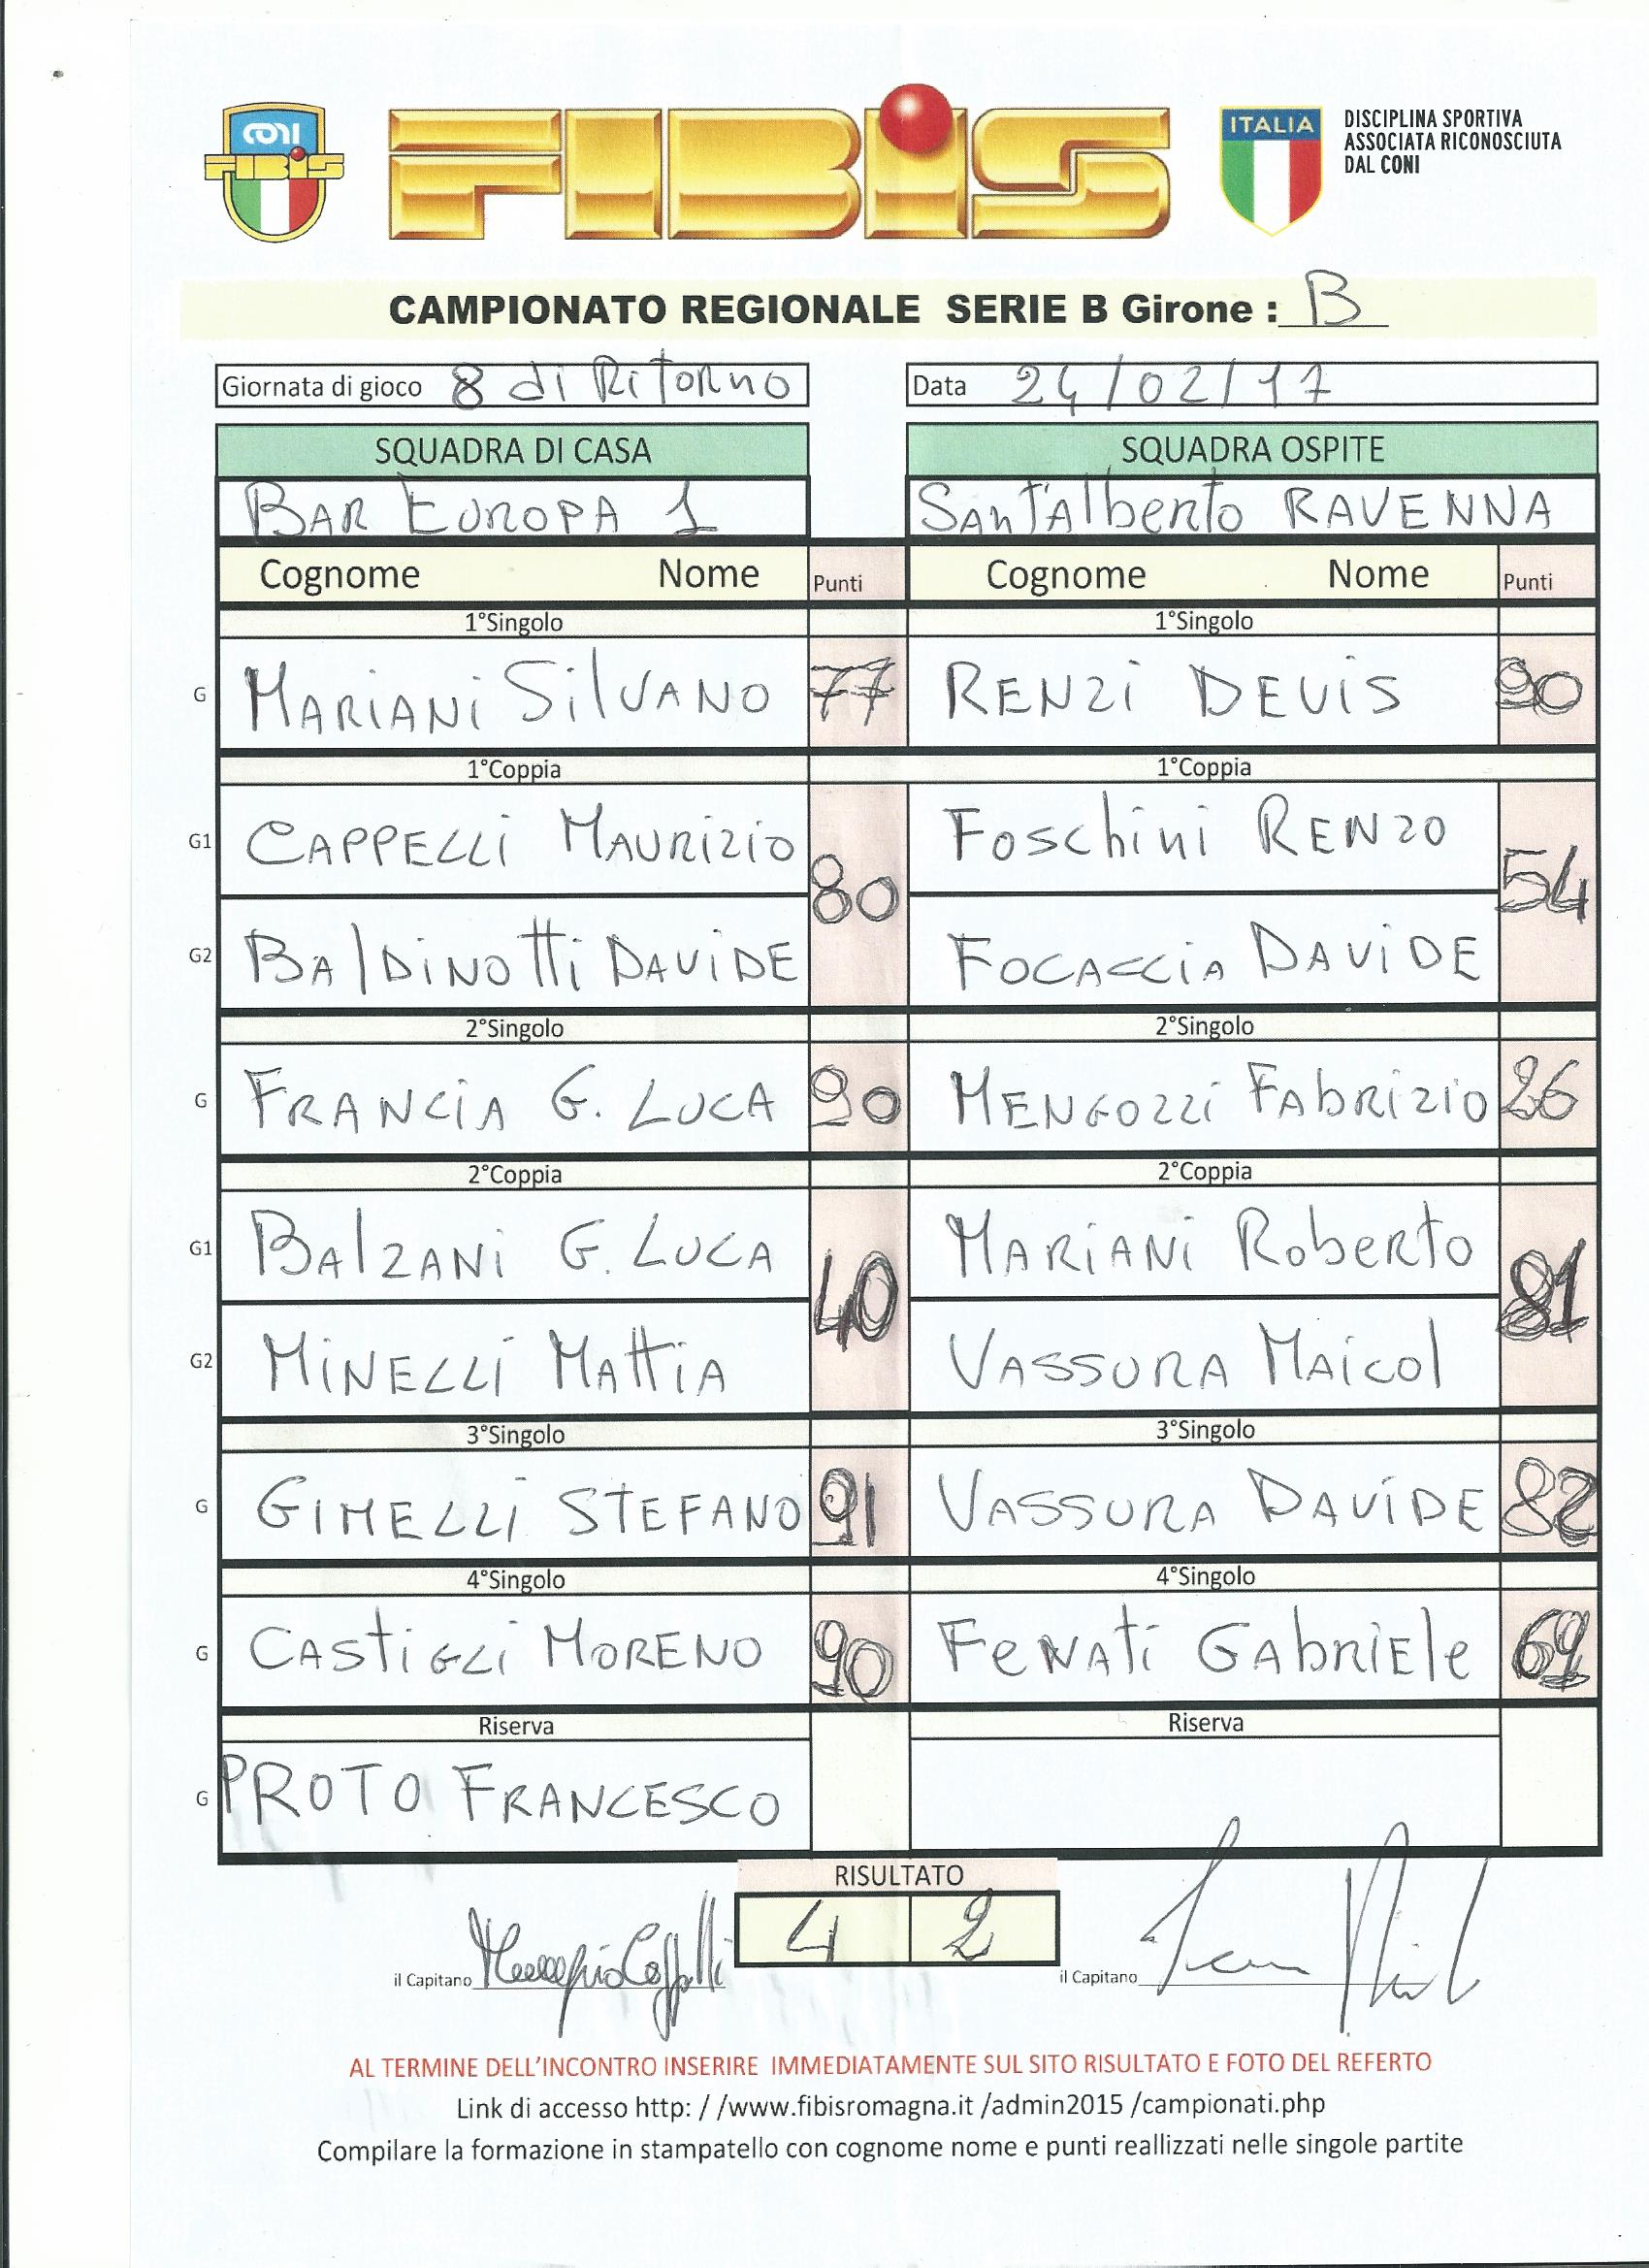 CONI
FIBIS
FIBIS
ITALIA
DISCIPLINA SPORTIVA
ASSOCIATA RICONOSCIUTA
DAL CONI
CAMPIONATO REGIONALE SERIE B Girone : B
Giornata di gioco 8 di RiTORNO
Data 24/02/17
SQUADRA DI CASA SQUADRA OSPITE
BAR EUROPA 1 SAnT'Alberto RAVENNA
Cognome Nome Punti Cognome Nome Punti
1°Singolo 1°Singolo
G MARIANi SilVANO 77 RENZi DEViS 90
1°Coppia 1°Coppia
G1 CAPPELLi MAURIZIO 80 Foschini RENZO 54
G2 BAlDiNOtti DAViDE FOCACCIA DAViDE
2°Singolo 2°Singolo
G FRANCIA G. LUCA 90 MENGOZZi FAbRIZIO 26
2°Coppia 2°Coppia
G1 BAlZANi G. LUCA 40 MARIANi Roberto 81
G2 MiNELLi MAttiA VASSURA MAicol
3°Singolo 3°Singolo
G GIMELLI STEFANO 91 VASSURA DAViDE 82
4°Singolo 4°Singolo
G CAStiGLi MORENO 90 FeNAti GAbRiEle 69
Riserva Riserva
G PROTO FRANCESCO
RISULTATO
4 2
il Capitano il Capitano
AL TERMINE DELL'INCONTRO INSERIRE IMMEDIATAMENTE SUL SITO RISULTATO E FOTO DEL REFERTO
Link di accesso http: / /www.fibisromagna.it /admin2015 /campionati.php
Compilare la formazione in stampatello con cognome nome e punti reallizzati nelle singole partite